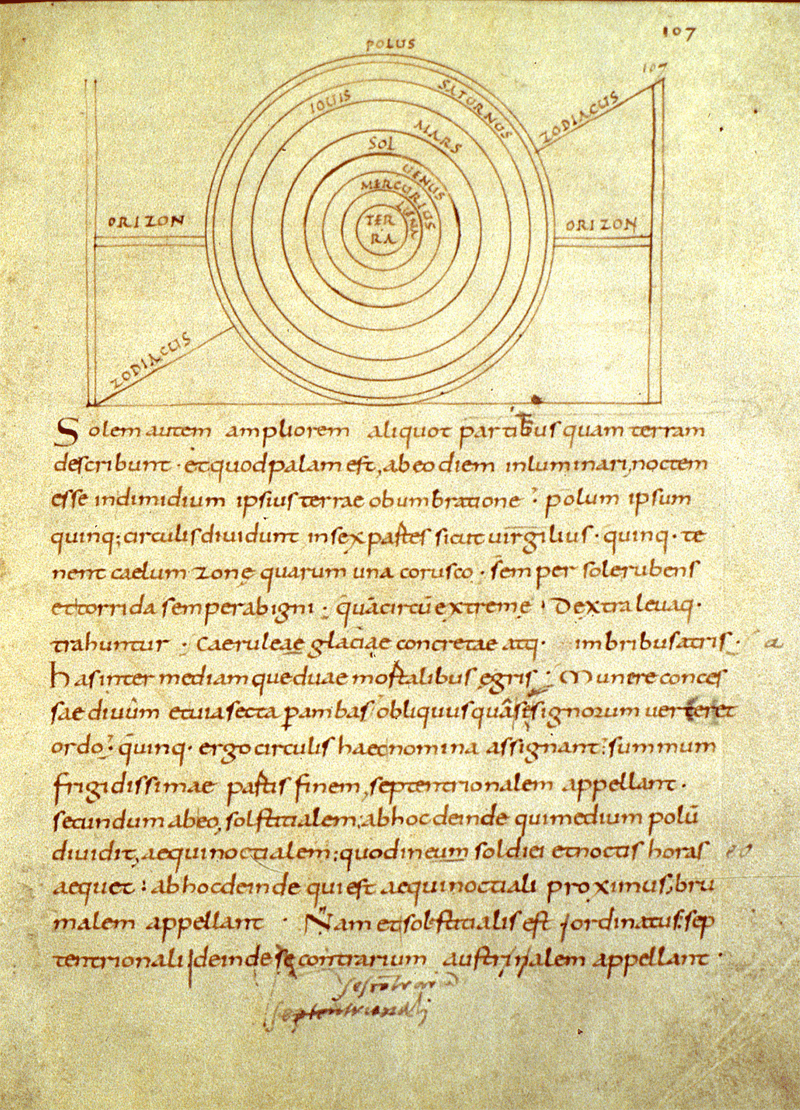 107
107
POLUS
SATURNUS
IOUIS
MARS
ZODIACUS
SOL
UENUS
MERCURIUS
LUNA
TERRA
ORIZON
ORIZON
ZODIACUS
Solem autem ampliorem aliquot partibus quam terram
describunt · et quod palam est, ab eo diem inluminari, noctem
esse indimidium ipsius terrae obumbratione : polum ipsum
quinq; circulis diuidunt in sex partes sicut uirgilius · quinq · te
nent caelum zone quarum una corusco · semper sole rubens
et torrida semper ab igni : quā circū extreme Dextra leuaq ·
trahuntur · Caeruleae glaciae concretae atq · imbribus atris · a
has inter mediamque duae mortalibus egris : Munere conces
sae diuûm et uia secta p ambas obliquus quâ se signorum uerteret
ordo : quinq · ergo circulis haec nomina assignant : summum
frigidissimae partis finem, septentrionalem appellant ·
secundum ab eo, solstitialem : ab hoc deinde qui medium polū
diuidit, aequinoctialem : quod in eum sol diei et noctis horas
aequet : ab hoc deinde qui est aequinoctiali proximus, bru
malem appellant · Nam et solstitialis est ordinatus : sep
tentrionali deinde se contrarium austrinalem appellant ·
septentrionali